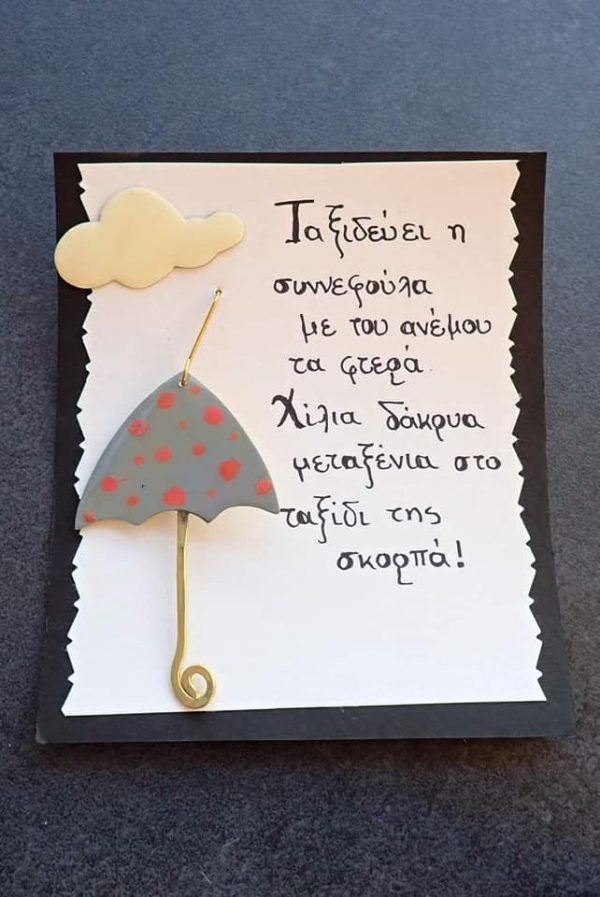 Ταξιδεύει η
συννεφούλα
με του ανέμου
τα φτερά.
Χίλια δάκρυα
μεταξένια στο
ταξίδι της
σκορπά!